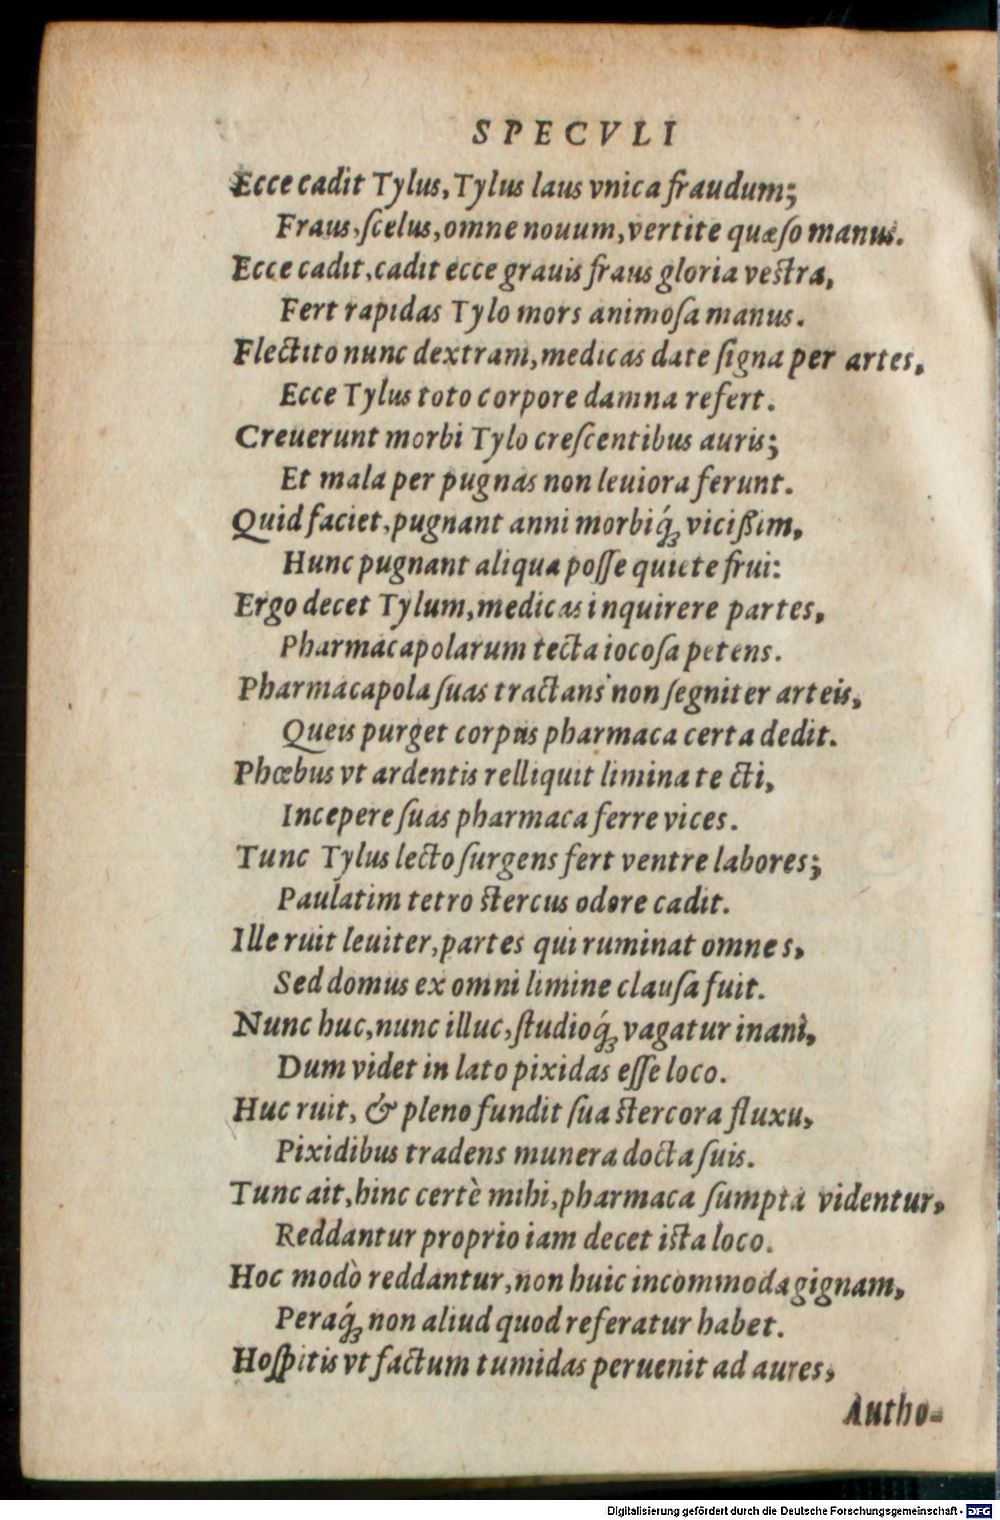 SPECVLI
Ecce cadit Tylus, Tylus laus vnica fraudum;
Fraus, ſcelus, omne nouum, vertite quæſo manus.
Ecce cadit, cadit ecce grauis fraus gloria veſtra,
Fert rapidas Tylo mors animoſa manus.
Flectito nunc dextram, medicas date ſigna per artes,
Ecce Tylus toto corpore damna refert.
Creuerunt morbi Tylo creſcentibus auris;
Et mala per pugnas non leuiora ferunt.
Quid faciet, pugnant anni morbiq́ꝫ vicißim,
Hunc pugnant aliqua poſſe quiete frui:
Ergo decet Tylum, medicas inquirere partes,
Pharmacapolarum tecta iocoſa petens.
Pharmacapola ſuas tractans non ſegniter arteis,
Queis purget corpus pharmaca certa dedit.
Phœbus vt ardentis relliquit limina tecti,
Incepere ſuas pharmaca ferre vices.
Tunc Tylus lecto ſurgens fert ventre labores;
Paulatim tetro ſtercus odore cadit.
Ille ruit leuiter, partes qui ruminat omnes,
Sed domus ex omni limine clauſa fuit.
Nunc huc, nunc illuc, ſtudioq́ꝫ vagatur inani,
Dum videt in lato pixidas eſſe loco.
Huc ruit, & pleno fundit ſua ſtercora fluxu,
Pixidibus tradens munera docta ſuis.
Tunc ait, hinc certè mihi, pharmaca ſumpta videntur,
Reddantur proprio iam decet iſta loco.
Hoc modò reddantur, non huic incommoda gignam,
Peraq́ꝫ non aliud quod referatur habet.
Hoſpitis vt factum tumidas peruenit ad aures,
Autho-
Digitalisierung gefördert durch die Deutsche Forschungsgemeinschaft - DFG